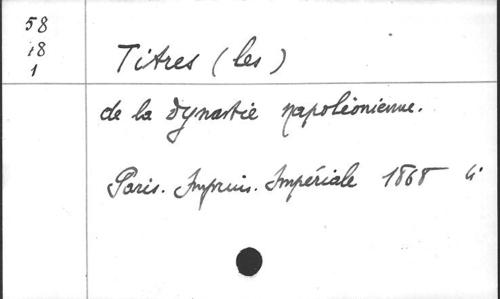 58
18
1
Titres (les)
de la dynastie napoléonienne.
Paris. Imprim. Impériale 1868